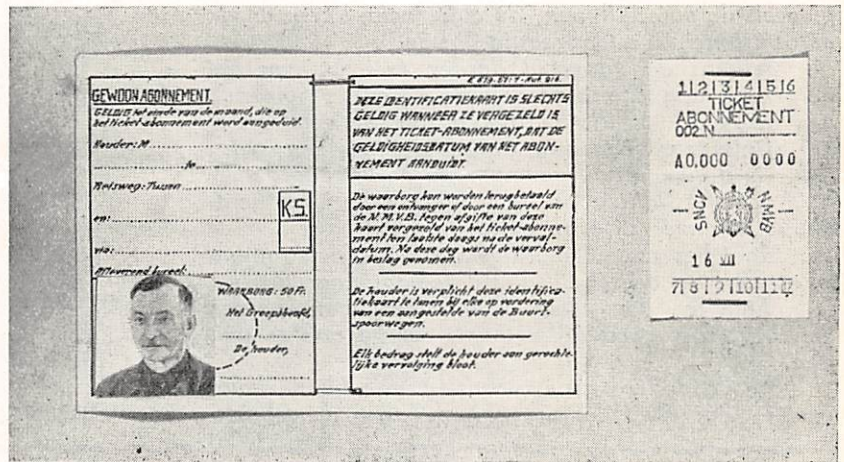 GEWOON ABONNEMENT.
GELDIG tot einde van de maand, die op
het ticket-abonnement werd aangeduid.
Houder: M
te
Reisweg: Tussen
en:
KS.
via:
Afleverend bureel:
WAARBORG: 50 Fr.
Het Groepshoofd,
De houder,
DEZE IDENTIFICATIEKAART IS SLECHTS
GELDIG WANNEER ZE VERGEZELD IS
VAN HET TICKET-ABONNEMENT, DAT DE
GELDIGHEIDSDATUM VAN HET ABON-
NEMENT AANDUIDT.
De waarborg kan worden terugbetaald
door een ontvanger of door een bureel van
de N.M.V.B. tegen afgifte van deze
kaart vergezeld van het ticket-abonne-
ment ten laatste daags na de verval-
datum. Na deze dag wordt de waarborg
in beslag genomen.
De houder is verplicht deze identifica-
tiekaart te tonen bij elke op vordering
van een aangestelde van de Buurt-
spoorwegen.
Elk bedrog stelt de houder aan gerechte-
lijke vervolging bloot.
1|2|3|4|5|6
TICKET
ABONNEMENT
002.N
A0.000 0000
SNCV
NMVB
16 VII
7|8|9|10|11|12